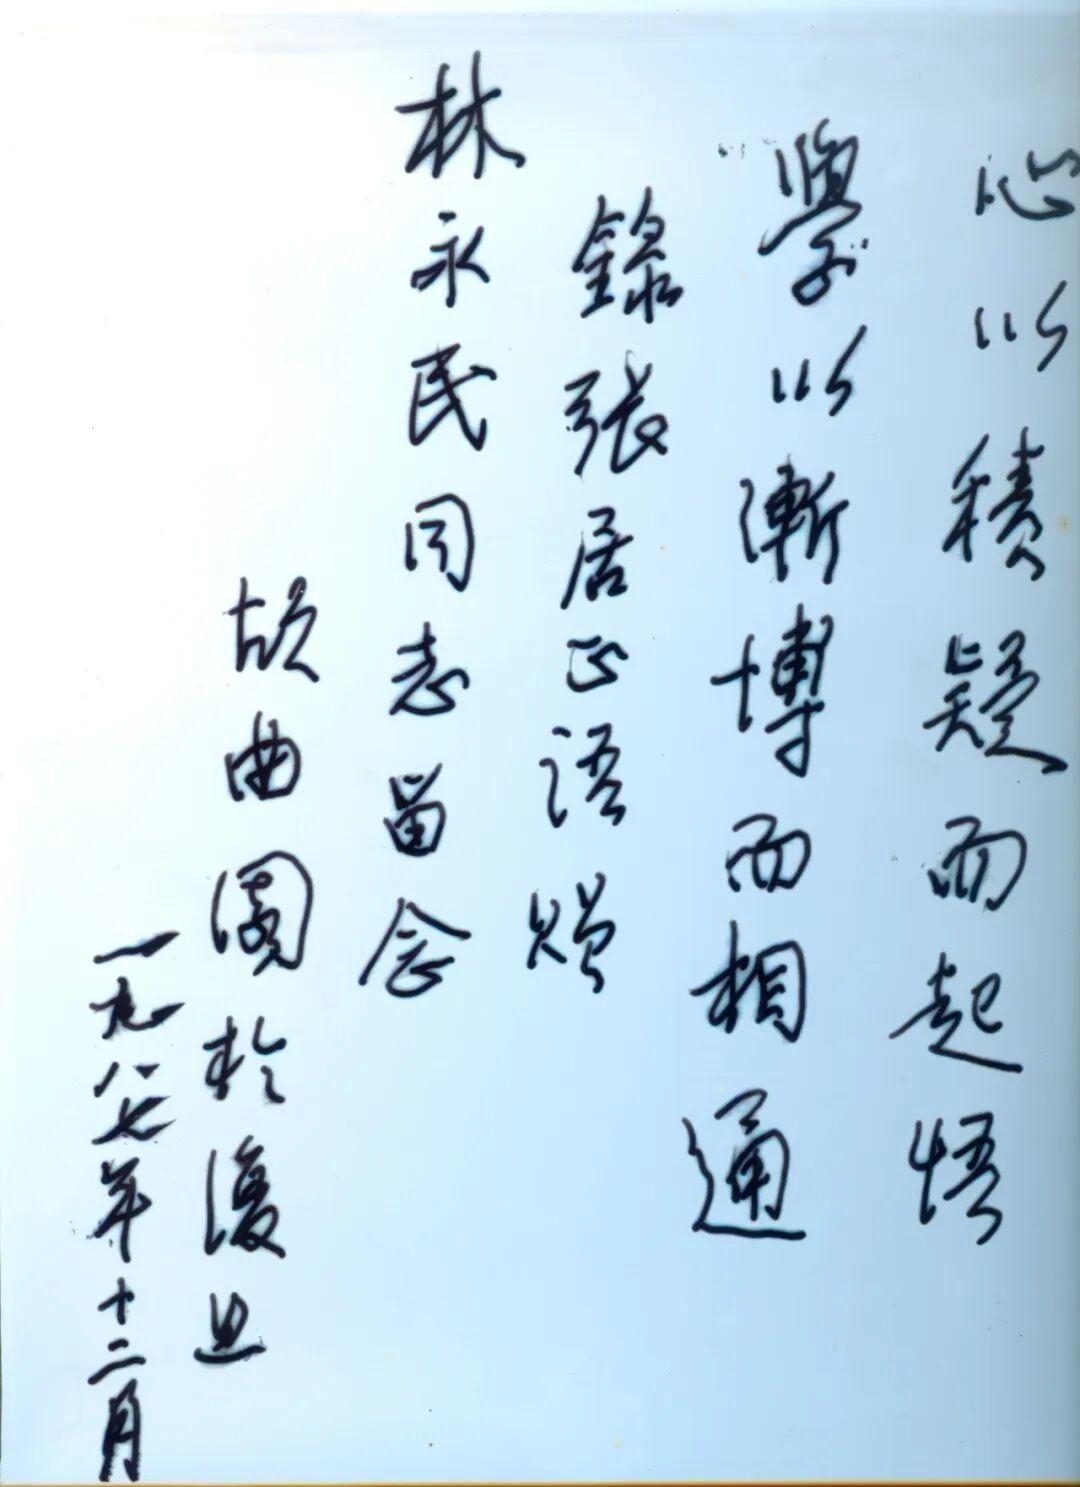 心以積疑而起悟
學以漸博而相通
錄張居正語贈
林永民同志留念
胡曲園於復旦
一九八七年十二月